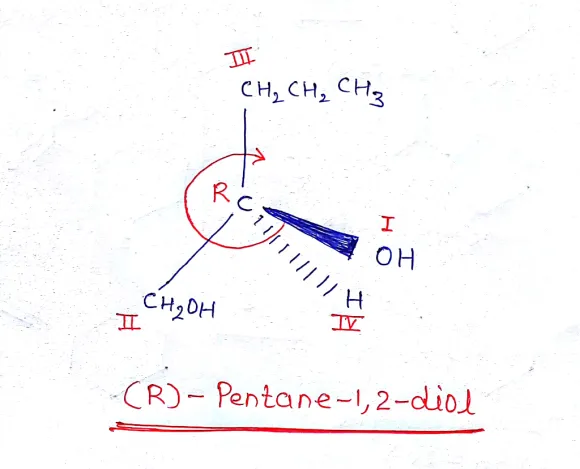 III
CH₂CH₂CH₃
R C
I
OH
CH₂OH
H
II
IV
(R)-Pentane-1,2-diol